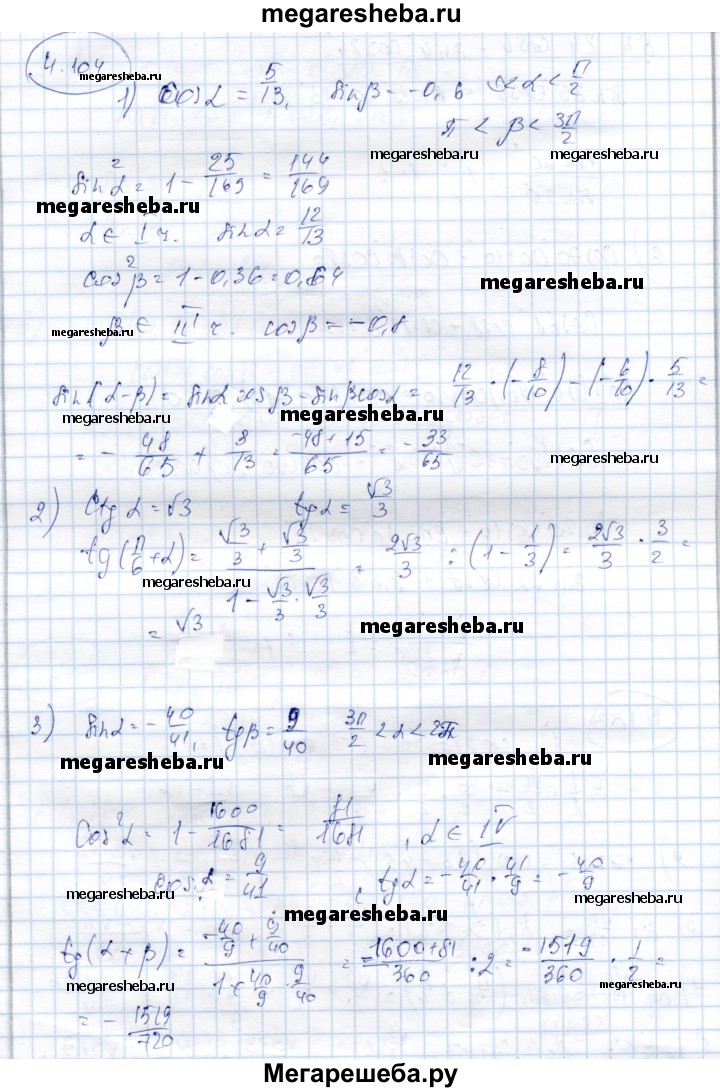 megaresheba.ru
4.104
megaresheba.ru
1) cos α = 5/13, sin β = -0,6 < α < π/2
π < β < 3π/2
megaresheba.ru
megaresheba.ru
sin²α = 1 - 25/169 = 144/169
megaresheba.ru
α ∈ I ч. sin α = 12/13
cos²β = 1 - 0,36 = 0,64
megaresheba.ru
megaresheba.ru
β ∈ III ч. cos β = -0,8
sin(α-β) = sin α cos β - sin β cos α = 12/13 · (-8/10) - (-6/10) · 5/13 =
megaresheba.ru
megaresheba.ru
megaresheba.ru
= - 48/65 + 3/13 = (-48+15)/65 = - 33/65
megaresheba.ru
2) ctg α = √3 tg α = √3/3
megaresheba.ru
tg(π/6 + α) = (√3/3 + √3/3)/(1 - √3/3 · √3/3) = 2√3/3 : (1 - 1/3) = 2√3/3 · 3/2 =
megaresheba.ru
= √3
megaresheba.ru
3) sin α = - 40/41, tg β = 9/40 3π/2 < α < 2π
megaresheba.ru
megaresheba.ru
cos²α = 1 - 1600/1681 = 81/1681, α ∈ IV
cos α = 9/41, tg α = - 40/41 · 41/9 = - 40/9
megaresheba.ru
megaresheba.ru
megaresheba.ru
tg(α+β) = (-40/9 + 9/40)/(1 + 40/9 · 9/40) = (-1600+81)/360 : 2 = -1519/360 · 1/2 =
megaresheba.ru
megaresheba.ru
= - 1519/720
Мегарешеба.ру